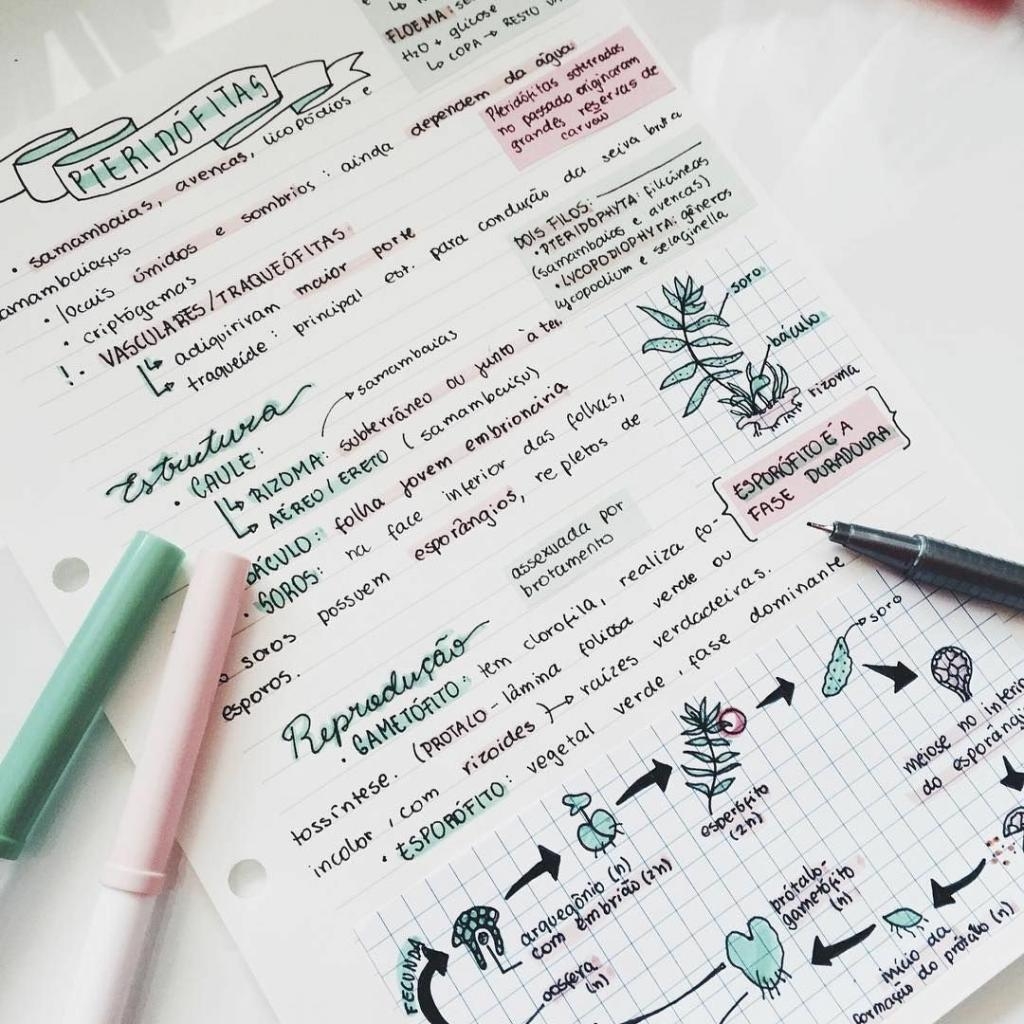 FLOEMA: se
H₂O + glicose
↳ COPA → RESTO
PTERIDÓFITAS
• samambaias, avencas, licopódios e
amambaiaçus
• locais úmidos e sombrios: ainda dependem da água
• criptógamas
!• VASCULARES/TRAQUEÓFITAS
↳ adiquiriram maior porte
↳ traqueíde: principal est. para condução da seiva bruta
Pteridófitas soterradas
no passado originaram
grandes reservas de
carvão
DOIS FILOS:
• PTERIDOPHYTA: filicíneas
(samambaias e avencas)
• LYCOPODIOPHYTA: gêneros
lycopodium e selaginella
soro
báculo
rizoma
ESPORÓFITO É A
FASE DURADOURA
Estrutura
• CAULE:
→ samambaias
↳ RIZOMA: subterrâneo ou junto à ter
↳ AÉREO/ERETO (samambaiaçu)
BÁCULO: folha jovem embrionária
• SOROS: na face inferior das folhas,
soros possuem esporângios, repletos de
esporos.
assexuada por
brotamento
Reprodução
• GAMETÓFITO: tem clorofila, realiza fo-
tossíntese. (PROTALO - lâmina foliosa verde ou
incolor, com rizoides) → raízes verdadeiras.
• ESPORÓFITO: vegetal verde, fase dominante
→ soro
meiose no interio
do esporângi
esperófito
(2n)
arquegônio (n)
com embrião (2n)
FECUNDA
oosfera
(n)
prótalo-
gametófito
(n)
início da
formação do prótalo (n)